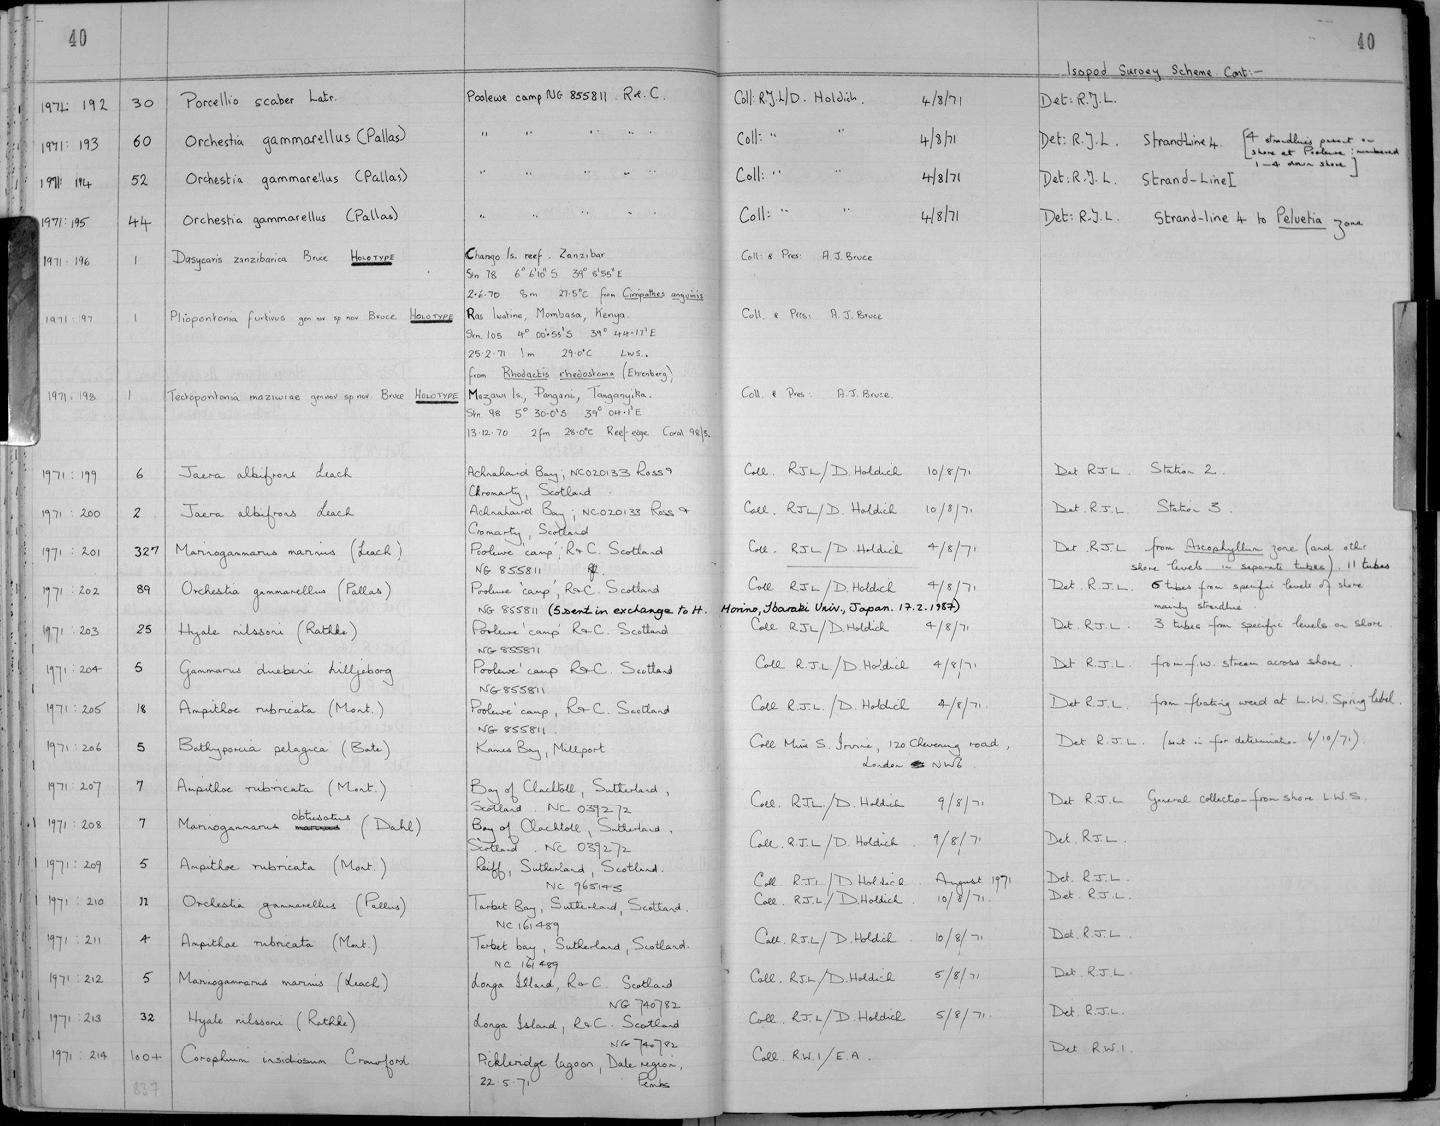 40
40
Isopod Survey Scheme Cont:-
1971: 192 30 Porcellio scaber Latr. Poolewe camp NG 855811 R&C. Coll: R.J.L/D. Holdich. 4/8/71 Det: R.J.L.
1971: 193 60 Orchestia gammarellus (Pallas) " " " " " Coll: " " 4/8/71 Det: R.J.L. Strandline 4. [4 strandlines present on
shore at Poolewe; numbered
1-4 down shore]
1971: 194 52 Orchestia gammarellus (Pallas) " " " " " Coll: " " 4/8/71 Det: R.J.L. Strand-Line I
1971: 195 44 Orchestia gammarellus (Pallas) " " " " " Coll: " " 4/8/71 Det: R.J.L. Strand-line 4 to Pelvetia zone
1971: 196 1 Dasycaris zanzibarica Bruce HOLOTYPE Chango Is. reef. Zanzibar Coll: & Pres: A.J. Bruce
Stn 78 6° 6'10" S 39° 8'55" E
2·6·70 8m 27·5°C from Cirripathes anguinis
1971: 197 1 Pliopontonia furtivus gen nov sp nov Bruce HOLOTYPE Ras Iwatine, Mombasa, Kenya. Coll. & Pres: A.J. Bruce
Stn. 105 4° 00·55'S 39° 44·17'E
25·2·71 1m 29·0°C L.W.S..
from Rhodactis rhodostoma (Ehrenberg)
1971: 198 1 Tectopontonia maziwiae gen nov sp nov. Bruce HOLOTYPE Mazawi Is., Pangani, Tanganyika. Coll. & Pres: A.J. Bruce.
Stn. 98 5° 30·0'S 39° 04·1'E
13·12·70 2fm 28·0°C Reef edge Coral 98/3.
1971: 199 6 Jaera albifrons Leach Achnahaird Bay; NC020133 Ross & Coll. RJL/D. Holdich 10/8/71 Det RJL. Station 2.
Chromarty, Scotland
1971: 200 2 Jaera albifrons Leach Achnahaird Bay; NC020133 Ross & Coll. RJL/D. Holdich 10/8/71 Det. R.J.L. Station 3.
Cromarty, Scotland
1971: 201 327 Marinogammarus marinus (Leach) Poolewe 'camp', R&C. Scotland Coll. RJL/D. Holdich 4/8/71 Det RJL from Ascophyllum zone (and other
NG 855811 shore levels in separate tubes). 11 tubes
1971: 202 89 Orchestia gammarellus (Pallas) Poolewe 'camp', R&C. Scotland Coll RJL/D. Holdich 4/8/71 Det. R.J.L. 6 tubes from specific levels of shore
NG 855811 (5 sent in exchange to H. Morino, Ibaraki Univ., Japan. 17.2.1987) mainly strandline.
1971: 203 25 Hyale nilssoni (Rathke) Poolewe 'camp' R&C. Scotland Coll RJL/D. Holdich 4/8/71 Det. R.J.L. 3 tubes from specific levels on shore.
NG 855811
1971: 204 5 Gammarus duebeni Lilljeborg Poolewe 'camp R&C. Scotland Coll R.J.L/D. Holdich 4/8/71 Det R.J.L. from f.w. stream across shore.
NG 855811
1971: 205 18 Ampithoe rubricata (Mont.) Poolewe 'camp, R&C. Scotland Coll. R.J.L./D. Holdich 4/8/71. Det R.J.L. from floating weed at L.W. Spring level.
NG 855811.
1971: 206 5 Bathyporeia pelagica (Bate) Kames Bay, Millport Coll Miss S. Irvine, 120 Chevening road, Det R.J.L. (sent in for determination 6/10/71)
London NW6.
1971: 207 7 Ampithoe rubricata (Mont.) Bay of Clachtoll, Sutherland, Coll. RJL/D. Holdich 9/8/71 Det R.J.L General collection from shore L.W.S.
Scotland. NC 039272
1971: 208 7 Marinogammarus obtusatus (Dahl) Bay of Clachtoll, Sutherland, Coll. R.J.L/D. Holdich 9/8/71 Det. R.J.L.
Scotland. NC 039272
1971: 209 5 Ampithoe rubricata (Mont.) Reiff, Sutherland, Scotland. Coll R.J.L/D Holdich August 1971 Det. R.J.L.
NC 965145
1971: 210 11 Orchestia gammarellus (Pallas) Tarbet Bay, Sutherland, Scotland. Coll. R.J.L/D. Holdich 10/8/71. Det. R.J.L.
NC 161489
1971: 211 4 Ampithoe rubricata (Mont.) Tarbet bay, Sutherland, Scotland. Coll. R.J.L/D. Holdich 10/8/71 Det. R.J.L.
NC 161489
1971: 212 5 Marinogammarus marinus (Leach) Longa Island, R&C. Scotland Coll. RJL/D. Holdich 5/8/71 Det. R.J.L.
NG 740782
1971: 213 32 Hyale nilssoni (Rathke) Longa Island, R&C. Scotland Coll. R.J.L/D. Holdich 5/8/71. Det. R.J.L.
NG 740782
1971: 214 100+ Corophium insidiosum Crawford Pickleridge lagoon, Dale region, Coll. R.W.I/E.A. Det R.W.I.
22·5·71 Pembs
837